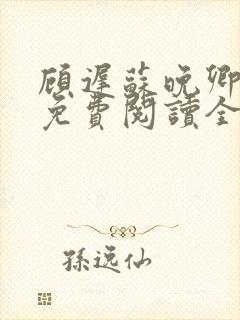 顧遲蘇晚卿
免費閱讀全
孫逸仙